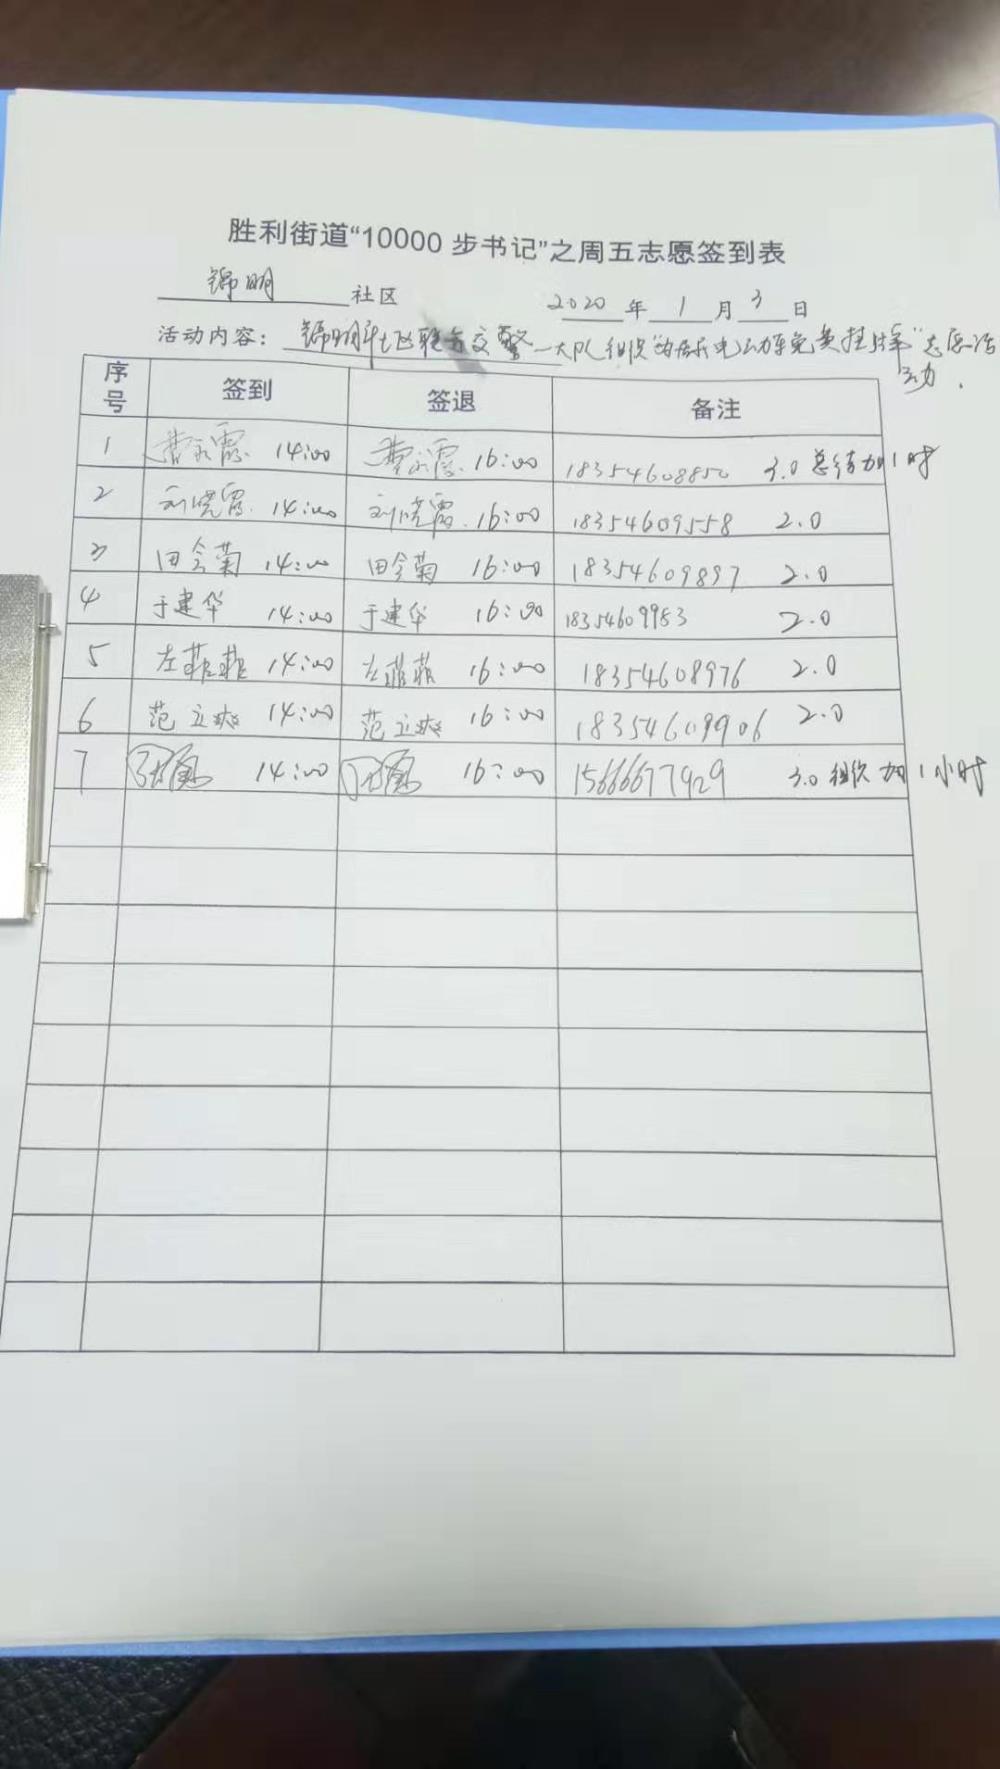 胜利街道“10000步书记”之周五志愿签到表
锦明 社区 2020 年 1 月 3 日
活动内容： 锦明社区联合交警一大队组织“为居民电动车免费挂牌”志愿活
动.
序号 签到 签退 备注
1 14:00 16:00 18354608850 3.0 总结加1时
2 刘晓霞 14:00 刘晓霞 16:00 18354609558 2.0
3 田会菊 14:00 田会菊 16:00 18354609897 2.0
4 于建华 14:00 于建华 16:00 18354609983 2.0
5 左菲菲 14:00 左菲菲 16:00 18354608976 2.0
6 范立爽 14:00 范立爽 16:00 18354609906 2.0
7 14:00 16:00 15666677929 3.0 组织加1小时